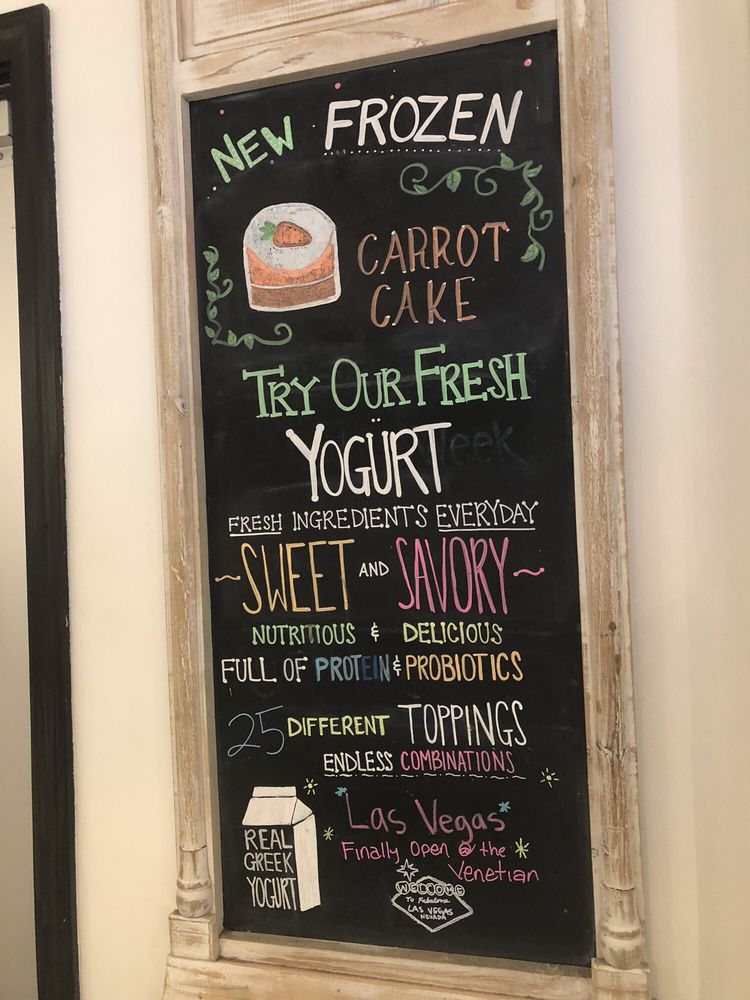 NEW FROZEN
CARROT
CAKE
TRY OUR FRESH
YOGÜRT
FRESH INGREDIENTS EVERYDAY
~SWEET AND SAVORY~
NUTRITIOUS & DELICIOUS
FULL OF PROTEIN & PROBIOTICS
25 DIFFERENT TOPPINGS
ENDLESS COMBINATIONS
REAL
GREEK
YOGURT
Las Vegas
Finally Open @ the
Venetian
WELCOME
To Fabulous
LAS VEGAS
NEVADA